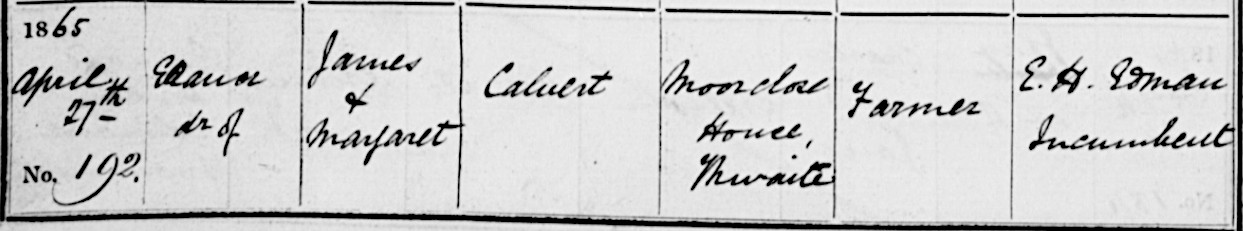 1865
April
27th
No. 192.
Eleanor
dr of
James
&
Margaret
Calvert
Moorclose
House,
Thwaite
Farmer
E. H. Edman
Incumbent